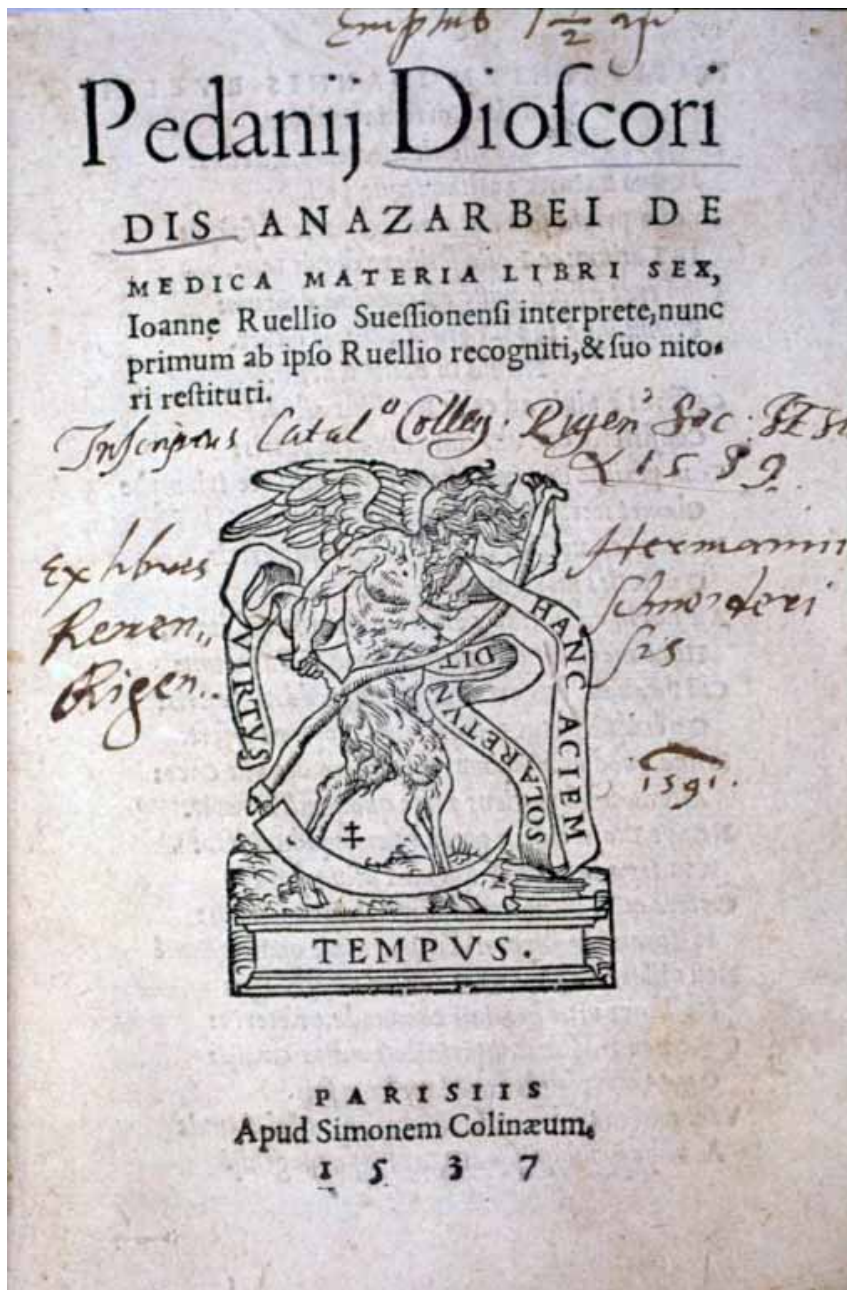 Emptus 1 1/2
Pedanij Dioſcori
DIS ANAZARBEI DE
MEDICA MATERIA LIBRI SEX,
Ioanne Ruellio Sueſſionenſi interprete, nunc
primum ab ipſo Ruellio recogniti, & ſuo nito-
ri reſtituti.
Inscriptus Catal. Colleg. Rigen. Soc.
1589.
Ex libris
Rigen..
Hermanni
1591.
VIRTVS
HANC ACIEM
SOLA RETVN
DIT
TEMPVS.
PARISIIS
Apud Simonem Colinæum.
1537